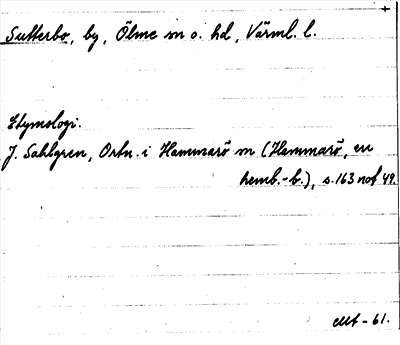 Sutterbo, by, Ölme sn o. hd, Värml. l.
Etymologi.
J. Sahlgren, Ortn. i Hammarö sn (Hammarö, en
hemb.-b.), s. 163 not 49.
-61.